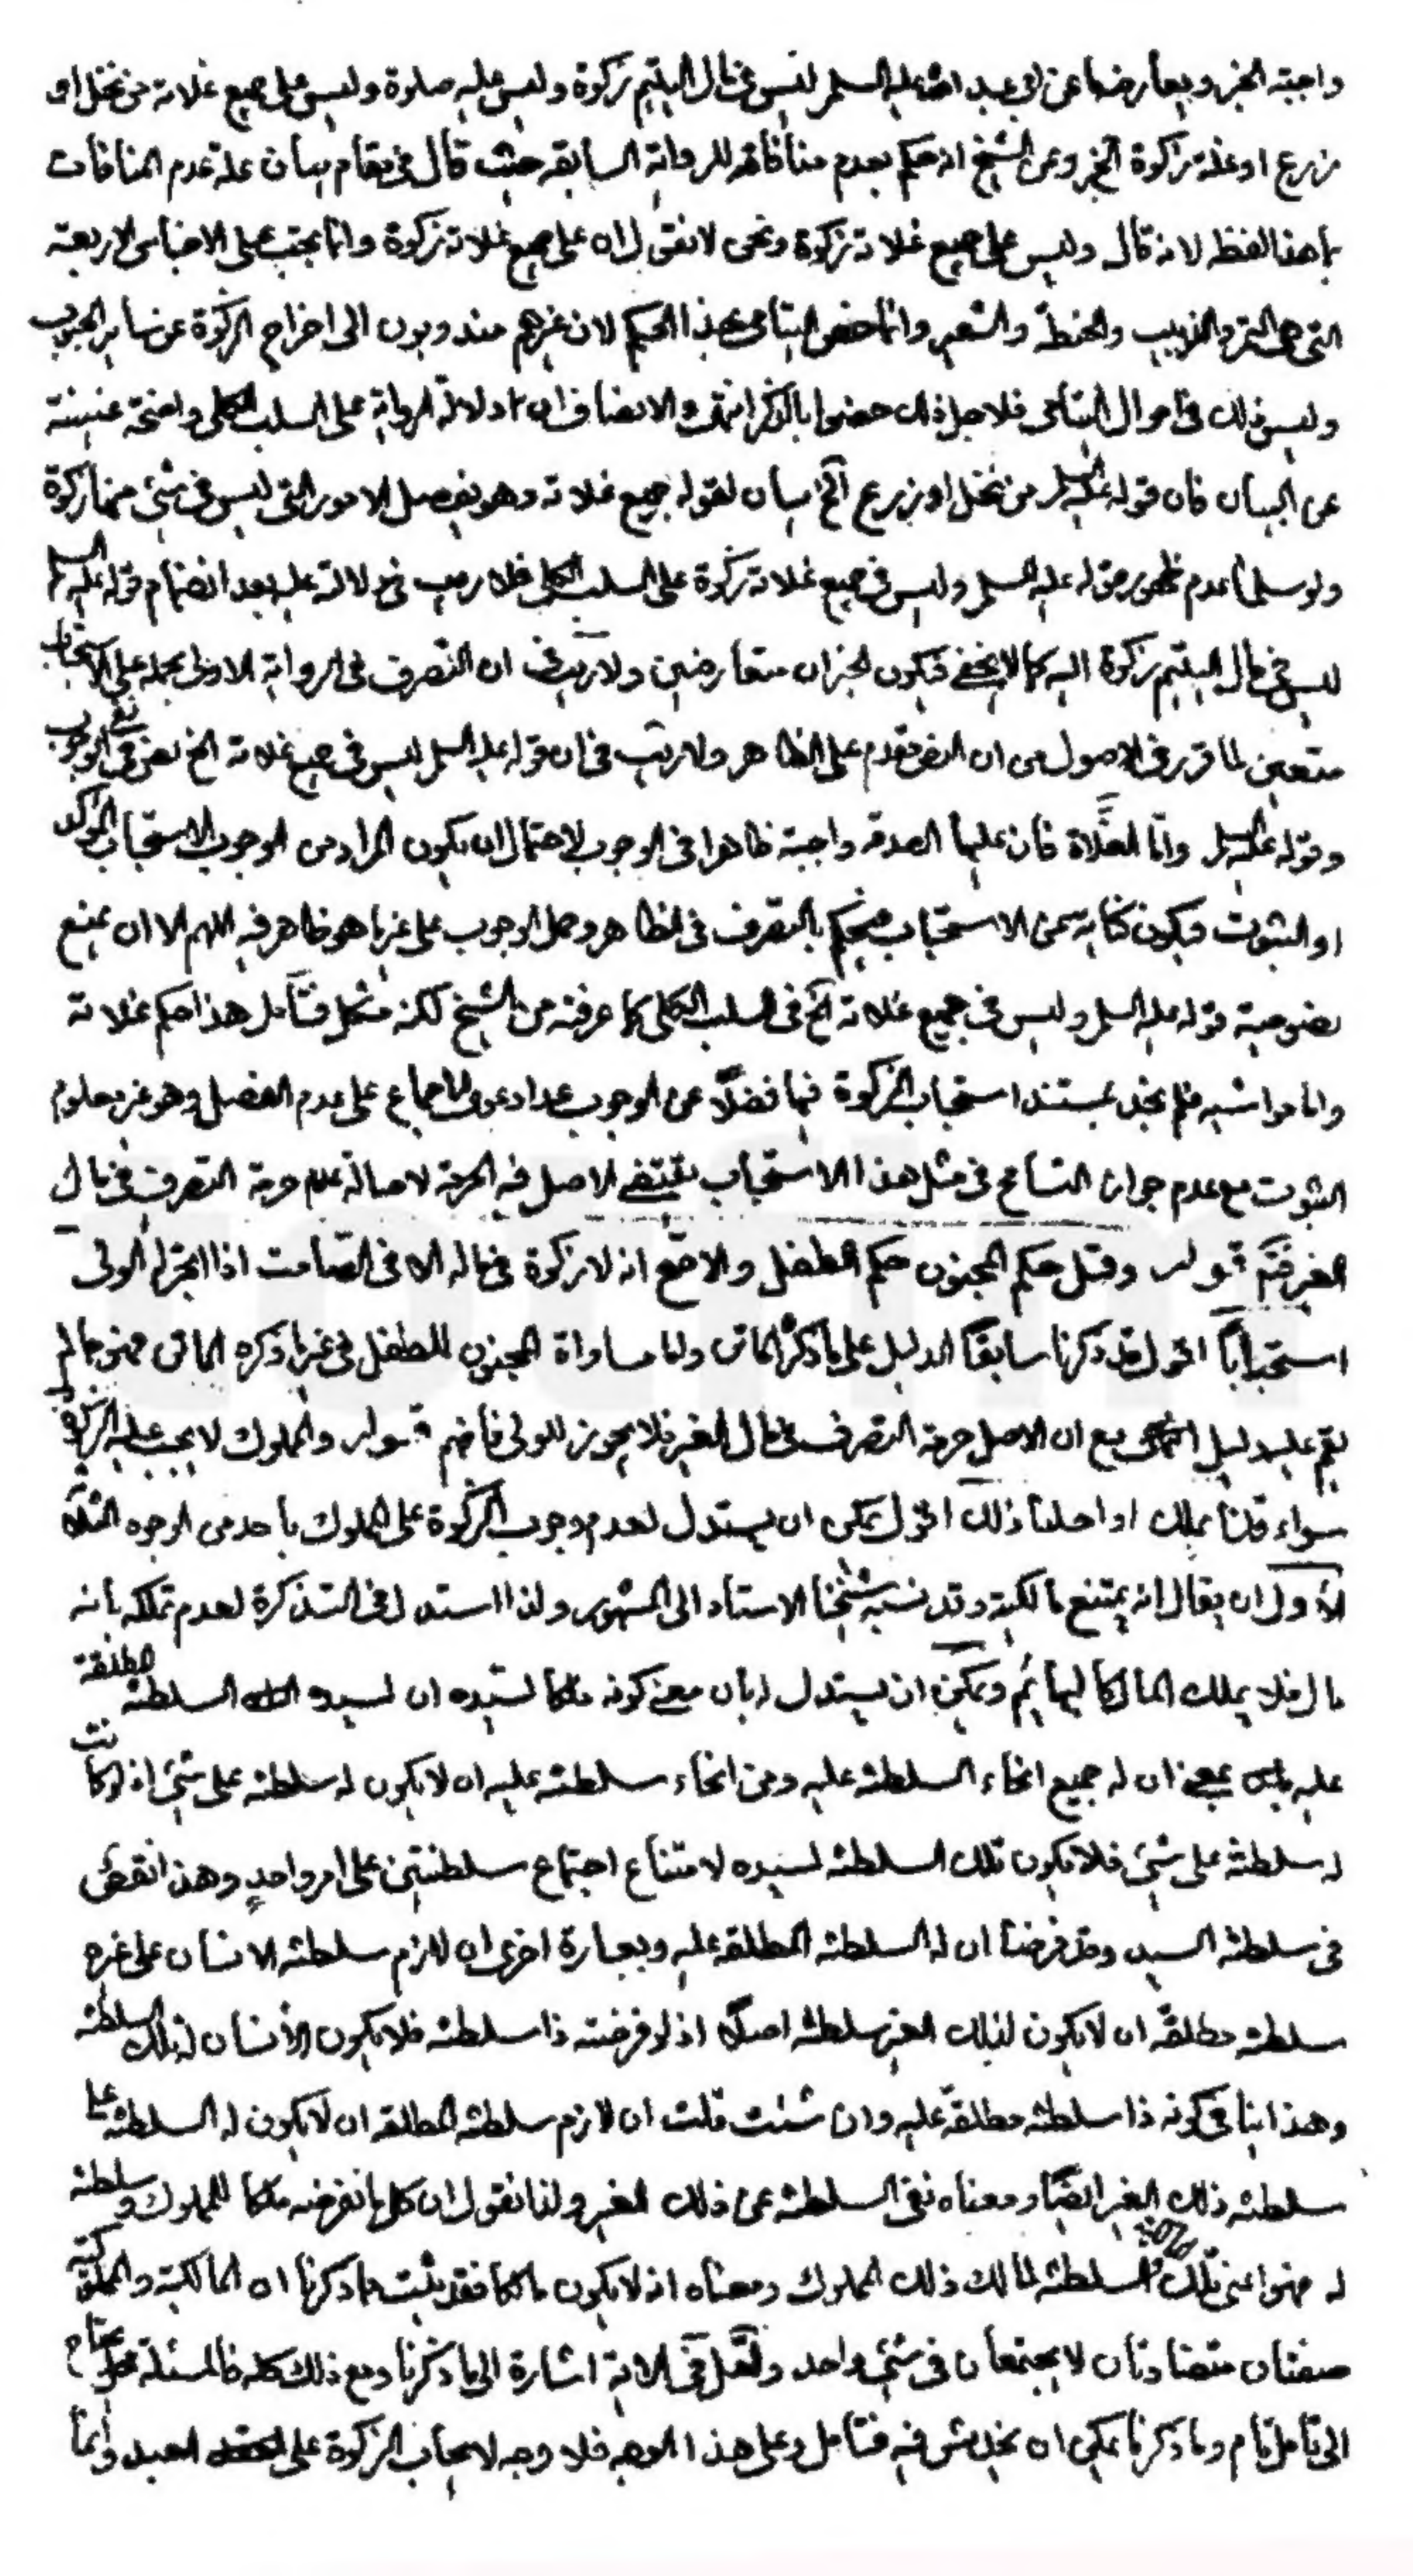 واجبة الخبر ويعارضها عن ابى عبد الله عليه السلم ليس فى مال اليتيم زكوة وليس عليه صلوة وليس على جميع غلاته من نخل او
زرع او غلة زكوة الخبر وعن الشيخ انه حكم بعدم منافاته للرواية السابقه حيث قال فى مقام بيان علة عدم المنافات
ما هذا لفظه لانه قال وليس على جميع غلاته زكوة ونحن لا نقول ان على جميع غلاته زكوة وانما يجب على الاجناس الاربعة
التى هى التمر والزبيب والحنطة والشعير وانما خص اليتامى بهذا الحكم لان غيرهم مندوبون الى اخراج الزكوة عن ساير الحبوب
وليس ذلك فى اموال اليتامى فلاجل ذلك خصوا بالذكر انتهى والانصاف ان دلالة الرواية على السلب الكلى واضحة غنية
عن البيان فان قوله عليه السلم من نخل او زرع الخ بيان لقوله جميع غلاته وهو تفصيل الامور التى ليس فى شئ منها زكوة
ولو سلمنا عدم ظهور قوله عليه السلم وليس فى جميع غلاته زكوة على السلب الكلى فلا ريب فى دلالته عليه بعد انضمام قوله عليه السلم
ليس فى مال اليتيم زكوة اليه كما لا يخفى فيكون الخبران متعارضين ولا ريب فى ان التصرف فى الرواية الاولى بحمله على الاستحباب
متعين لما قرر فى الاصول من ان النص مقدم على الظاهر ولا ريب فى ان قوله عليه السلم ليس فى جميع غلاته الخ نص فى نفى الوجوب
وقوله عليه السلم وامّا الغلاة فان عليها الصدقه واجبة ظاهرا فى الوجوب لاحتمال ان يكون المراد من الوجوب الاستحباب المؤكد
او الثبوت فيكون كناية عن الاستحباب فيحكم بالتصرف فى الظاهر وحمل الوجوب على غير ما هو ظاهر فيه اللهم الا ان يمنع
نصوصية قوله عليه السلم وليس فى جميع غلاته الخ فى السلب الكلى كما عرفته من الشيخ لكنه مشكل فتأمل هذا حكم غلاته
واما مواشيه فلم نجد مستند استحباب الزكوة فيها فضلاً عن الوجوب عدا دعوى الاجماع على عدم الفصل وهو غير معلوم
الثبوت مع عدم جواز التسامح فى مثل هذا الاستحباب مقتضى الاصل فيه الحرمة لاصالة عدم حرمة التصرف فى مال
الغير فتم قوله وقيل حكم المجنون حكم الطفل والاصح انه لا زكوة فى ماله الا فى الصامت اذا اتجر له الولى
استحباباً اقول قد ذكرنا سابقاً الدليل على ما ذكره الماتن واما مساواة المجنون للطفل فى غير ما ذكره الماتن فهو مما لم
يقم عليه دليل اجتهادى مع ان الاصل حرمة التصرف فى مال الغير فلا يجوز للولى فافهم قوله والمملوك لا يجب عليه الزكوة
سواء قلنا بملك او احلنا ذلك اقول يمكن ان يستدل لعدم وجوب الزكوة على المملوك باحد من الوجوه الثلاثة
الأول ان يقال انه يمتنع مالكيته وقد نسبه شيخنا الاستاد الى المشهور ولذا استدل فى التذكرة لعدم تملكه بانه
مال فلا يملك المال كالبهائم ويمكن ان يستدل له بان معنى كونه ملكا لسيده ان لسيده السلطنة المطلقة
عليه بمعنى ان له جميع انحاء السلطنة عليه ومن انحاء سلطنته عليه ان لا يكون له سلطنة على شئ اذ لو كانت
له سلطنة على شئ فلا يكون تلك السلطنة لسيده لامتناع اجتماع سلطنتين على امر واحدٍ وهذا نقص
فى سلطنة السيد وقد فرضنا ان له السلطنة المطلقة عليه وبعبارة اخرى ان لازم سلطنة الانسان على غيره
سلطنة مطلقة ان لا يكون لذلك الغير سلطنة اصلاً اذ لو فرضته ذا سلطنة فلا يكون الأنسان لذلك السلطنة
وهذا ينافى كونه ذا سلطنة مطلقة عليه وان شئت قلت ان لازم سلطنة المطلقة ان لا يكون له السلطنة على
سلطنة ذلك الغير ايضاً ومعناه نفى السلطنة عن ذلك الغير ولذا نقول ان كل ما نفرضه ملكا للمملوك وسلطنة
له فهو اعنى تلك السلطنة لمالك ذلك المملوك ومعناه انه لا يكون مالكا فقد ثبت مما ذكرنا ان المالكية والمملوكية
صفتان متضادتان لا يجتمعان فى شئ واحد ولعل فى الاية اشارة الى ما ذكرنا ومع ذلك كله فالمسئلة محتاج
الى تأمل تام وما ذكرنا يمكن ان يخدش فيه فتأمل وعلى هذا الوجه فلا وجه لايجاب الزكوة على العبد وامّا